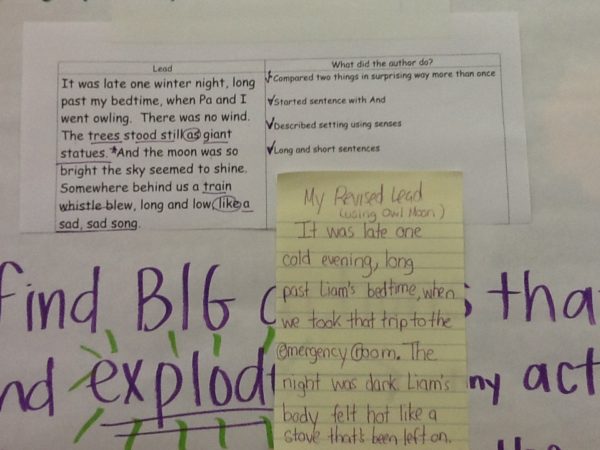 Lead
It was late one winter night, long
past my bedtime, when Pa and I
went owling. There was no wind.
The trees stood still as giant
statues. *And the moon was so
bright the sky seemed to shine.
Somewhere behind us a train
whistle blew, long and low, like a
sad, sad song.
What did the author do?
Compared two things in surprising way more than once
✓Started sentence with And
✓Described setting using senses
✓Long and short sentences
My Revised Lead
(using Owl Moon)
It was late one
cold evening, long
past Liam's bedtime, when
we took that trip to the
emergency room. The
night was dark. Liam's
body felt hot like a
stove that's been left on.
find BIG
explod
my act